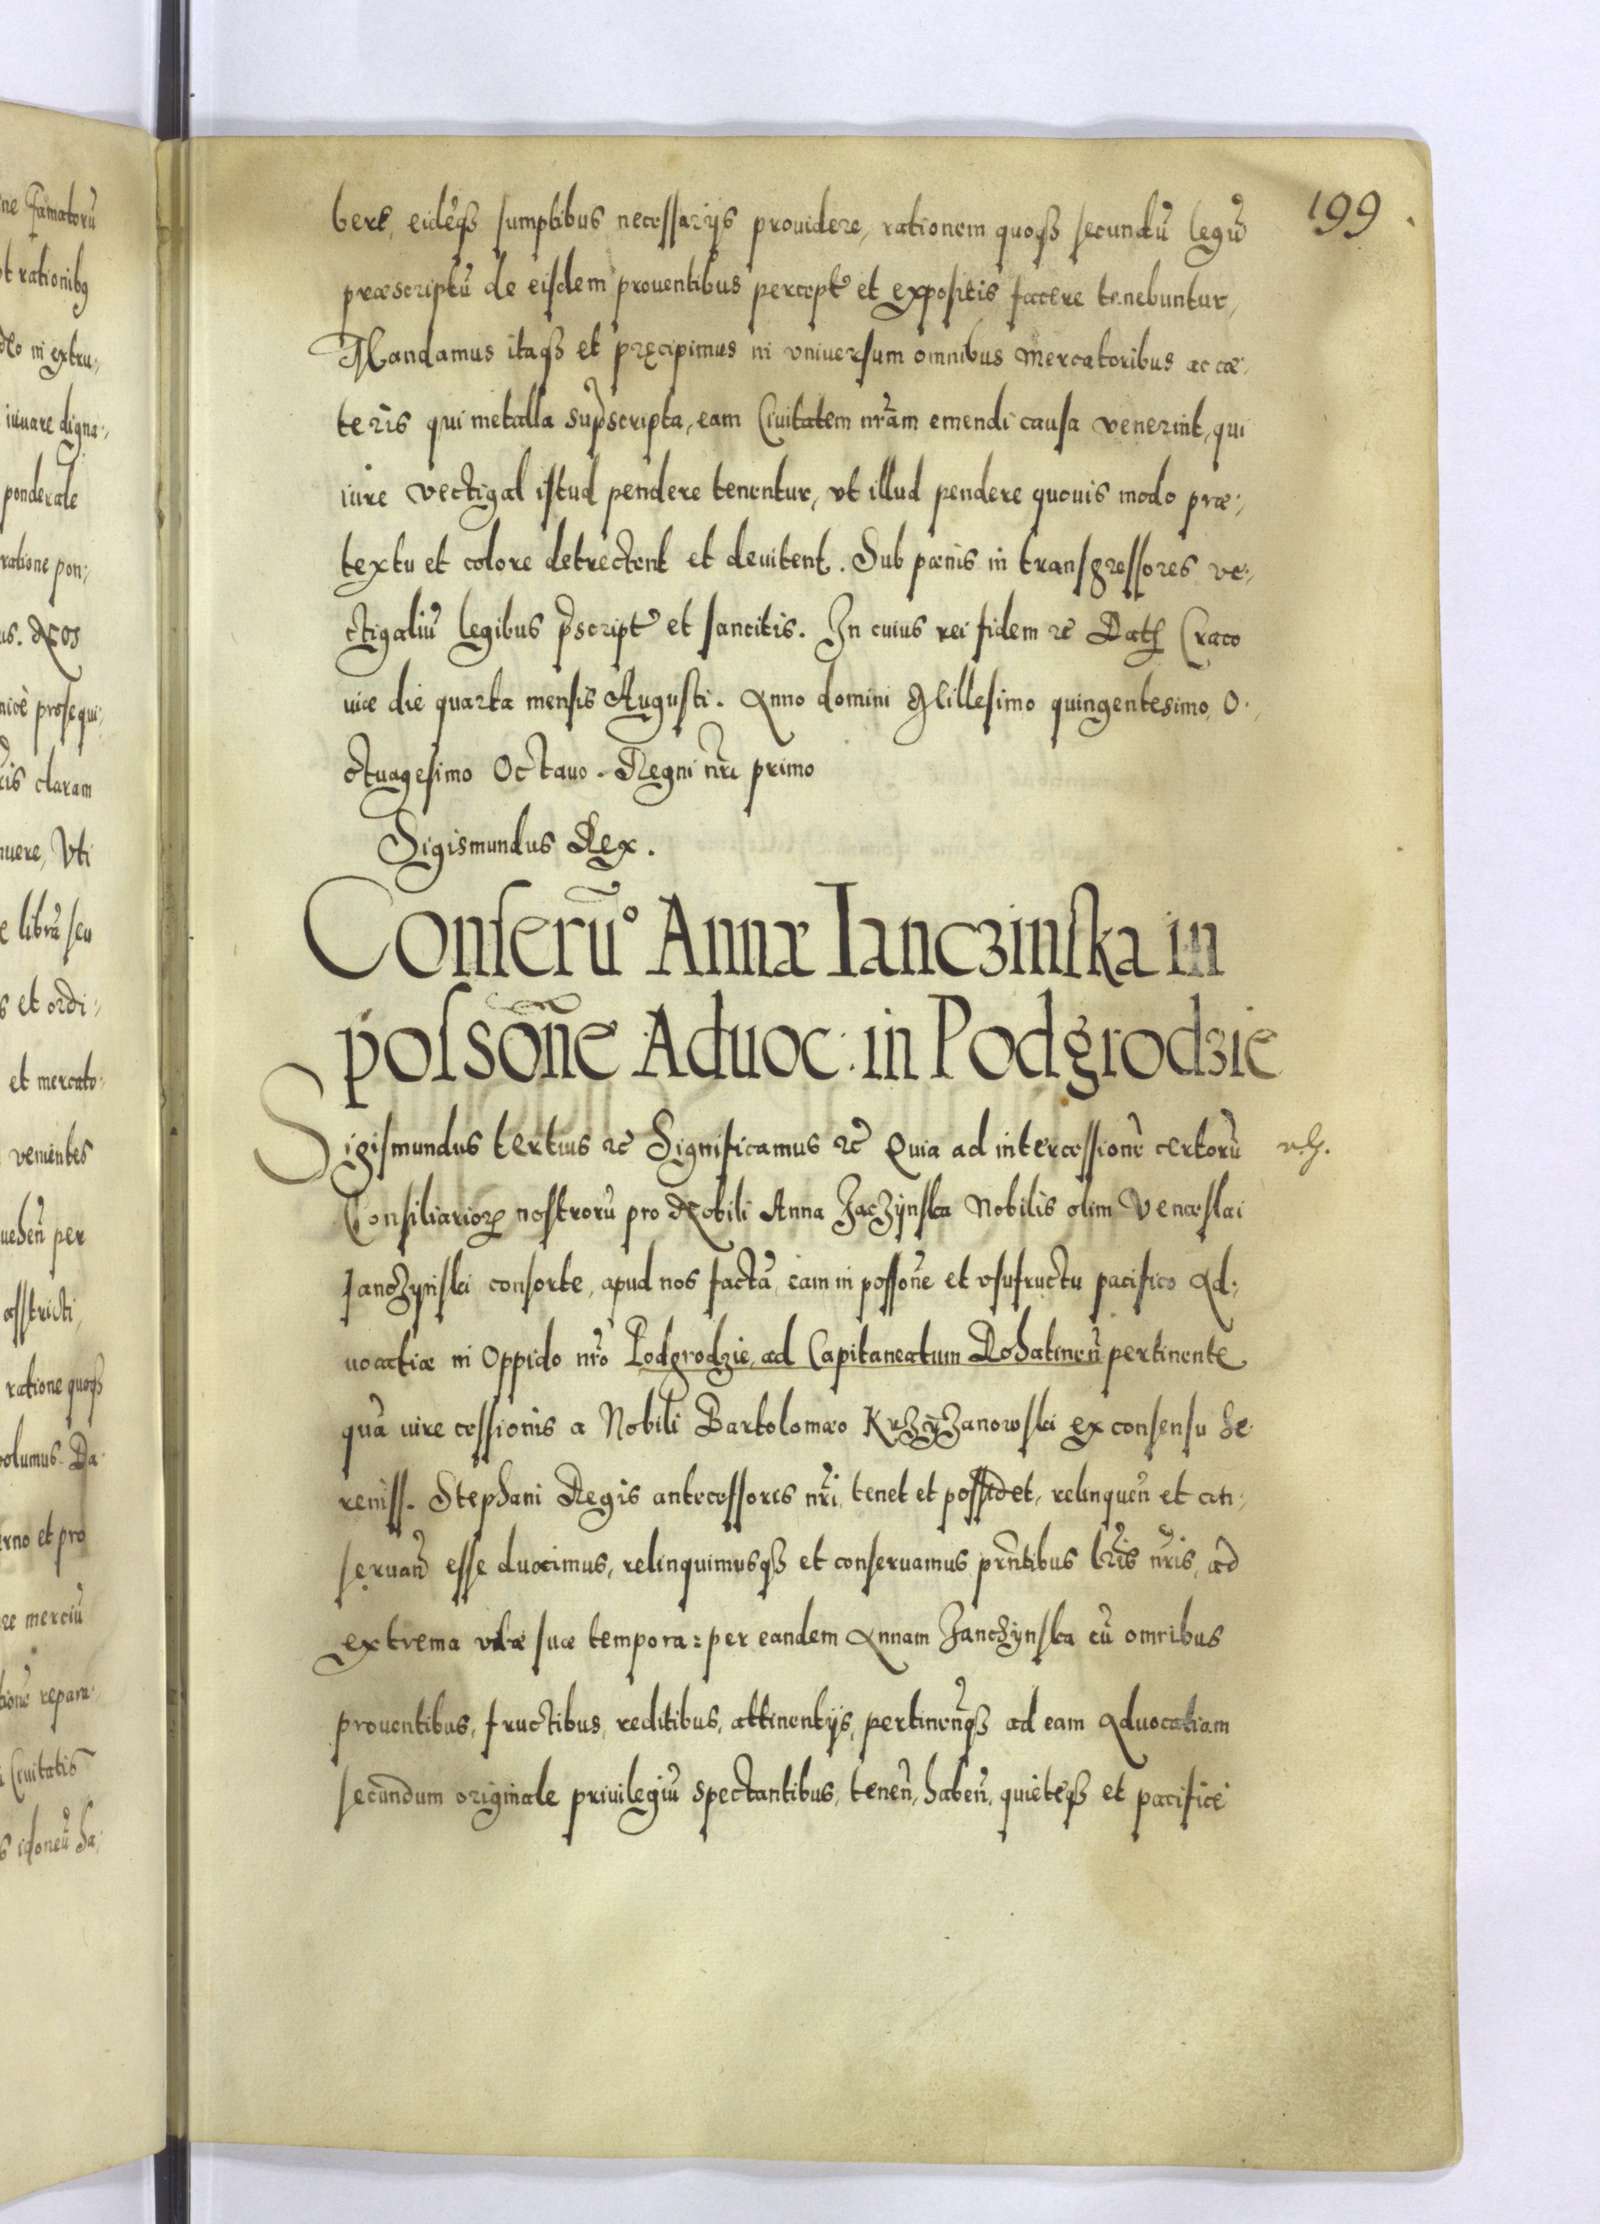 199
bere, eidēqȝ sumptibus necessarijs prouidere, rationem quoqȝ secundū legū
præscriptū de eisdem prouentibus percept et expositis facere tenebuntur,
Mandamus itaqȝ et pręcipimus in vniuersum omnibus mercatoribus ac cæ:
teris qui metalla supscripta, eam Ciuitatem nr̄am emendi causa venerint, qui
iure vectigal istud pendere tenentur, vt illud pendere quouis modo præ:,
textu et colore detrectent et deuitent. Sub pœnis in transgressores ve:,
ctigaliū legibus p̄script et sancitis. In cuius rei fidem etc Dat Craco
uiæ die quarta mensis Augusti. Anno domini Millesimo quingentesimo, O:,
ctuagesimo Octauo. Regni nr̄i primo
Sigismundus Rex.
Conseru̅o Annæ Ianczinska in
possōn̄e Aduoc: in Podgrodzie
Sigismundus tertius etc Significamus etc Quia ad intercessionē certorū
Consiliarioꝝ nostrorū pro Nobili Anna Jaczijnska Nobilis olim Venceslai
Janczijnski consorte, apud nos factā, eam in possōne et vsufructu pacifico Ad:,
uocatiæ in Oppido nr̄o Podgrodzie, ad Capitaneatum Rohatinen̄ pertinente
quā iure cessionis a Nobili Bartolomæo Krzijzanowski ex consensu Se
reniss. Stephani Regis antecessoris nr̄i, tenet et possidet, relinquen̄ et con:,
seruan̄ esse duximus, relinquimusqȝ et conseruamus prn̄tibus lr̄is nr̄is, ad
extrema vitæ suæ tempora: per eandem Annam Janczijnska cū omnibus
prouentibus, fructibus, reditibus, attinentijs, pertinen̄qȝ ad eam Aduocatiam
secundum originale priuilegiū spectantibus, tenen̄, haben̄, quieteqȝ et pacifice